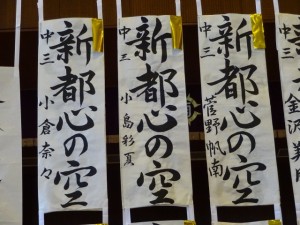 新都心の空
中三 菅野帆南
新都心の空
中三 小島彩夏
新都心の空
中三 小倉奈々